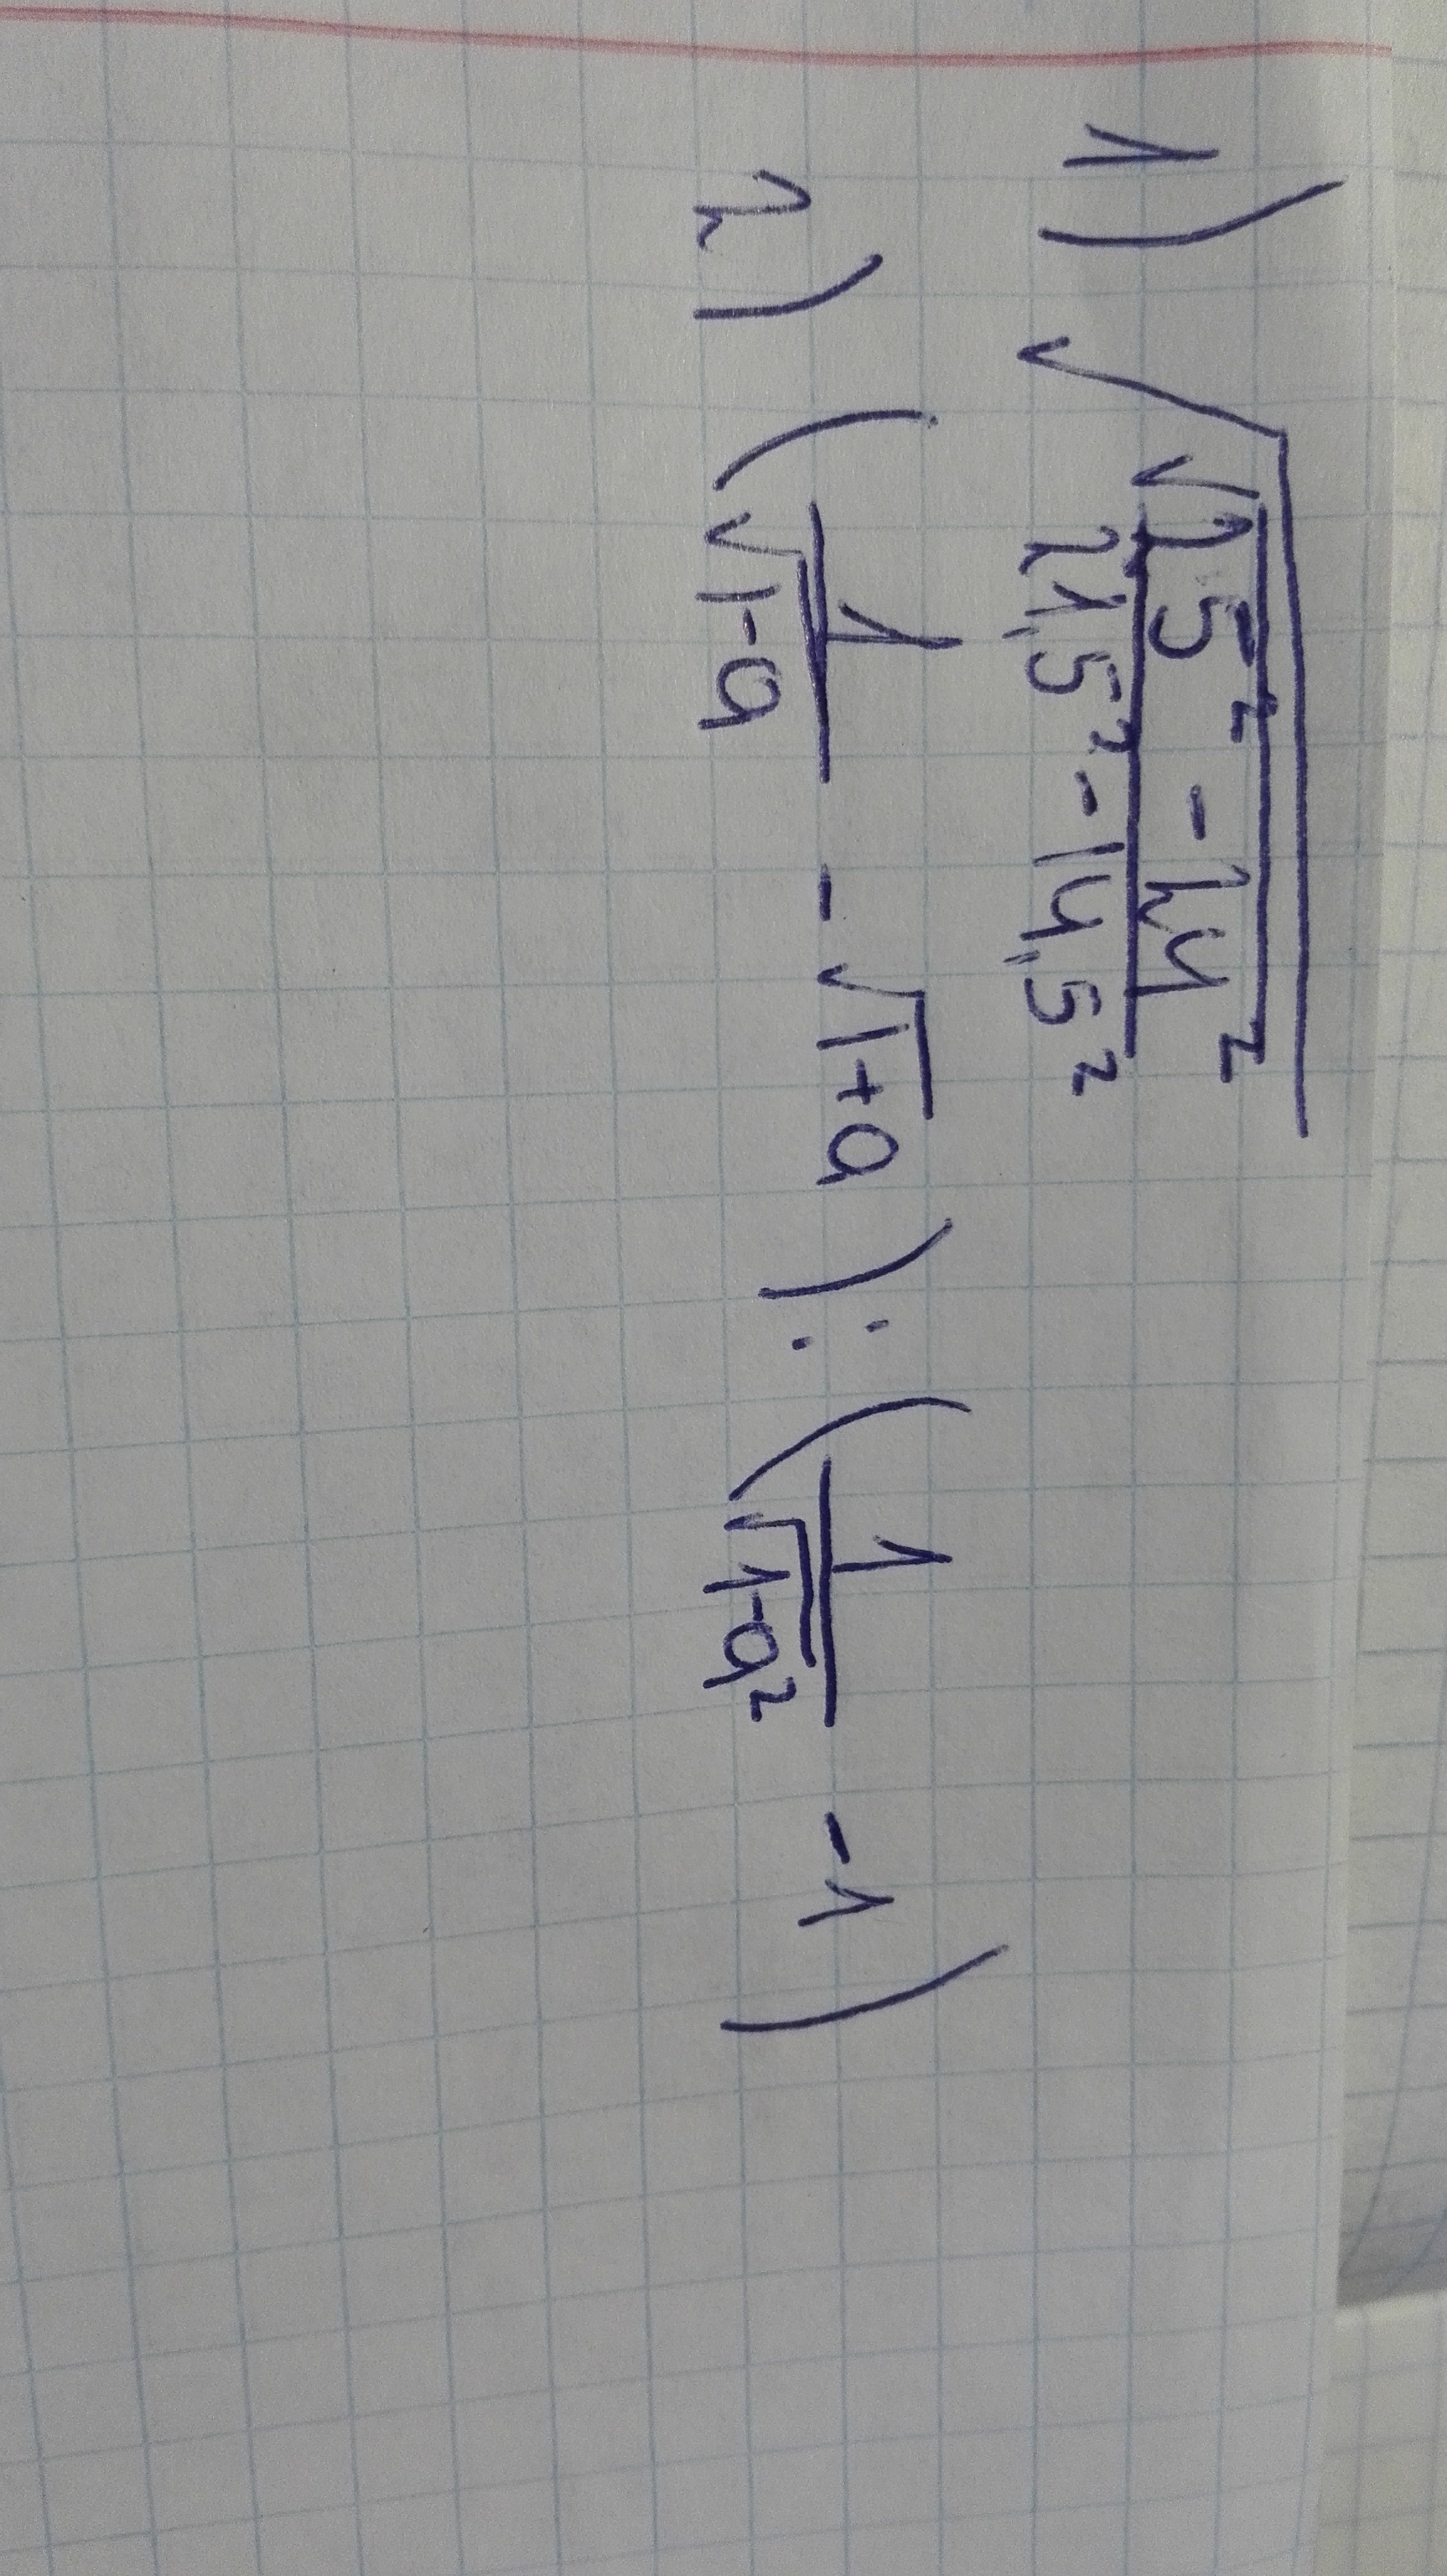 1) √(√(25² - 24²) / (21,5² - 14,5²))
2) (1/√(1-a) - √(1+a)) : (1/√(1-a²) - 1)